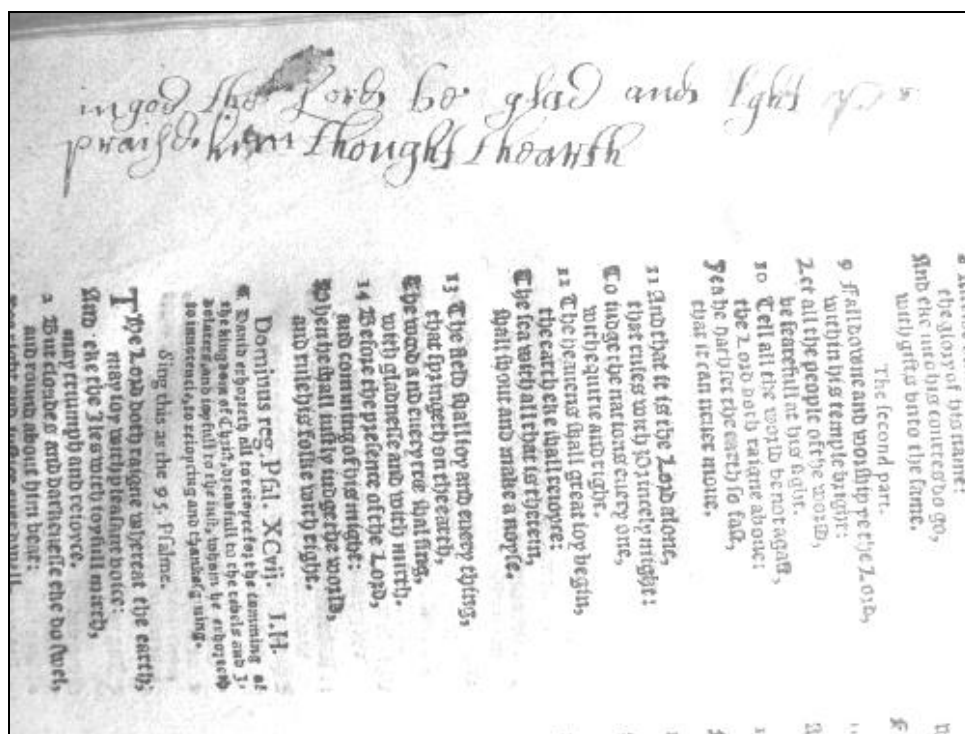 in god the Lord be glad and lght
praise him thought thearth
the glory of his name:
And eke into his courtes do go,
with gifts vnto the same.
The second part.
9 Fall downe and worship ye the Lord,
within his temple bright:
Let all the people of the world,
be fearefull at his sight.
10 Tell all the world be not agast,
the Lord doth raigne aboue:
Yea he hath set the earth so fast,
that it can neuer moue.
11 And that it is the Lord alone,
that rules with princely might:
To iudge the nations euery one,
with equitie and right.
12 The heauens shall great ioy begin,
the earth eke shall reioyce:
The sea with all that is therein,
shall shout and make a noyse.
13 The field shall ioy and euery thing,
that springeth on the earth,
The wood and euery tree shal sing,
with gladnesse and with mirth.
14 Before the presence of the Lord,
and comming of his might:
When he shall iustly iudge the world,
and rule his folke with right.
Dominus reg. Psal. XCvij. I.H.
¶ Dauid exhorteth all to reioyce for the comming of
the kingdom of Christ, dreadfull to the rebels and
and ioyfull to the iust, whom he exhorteth
to innocencie, to reioycing and thanksgiuing.
Sing this as the 95. Psalme.
The Lord doth raigne whereat the earth,
may ioy with pleasant voice:
And eke the Iles with ioyfull mirth,
may triumph and reioyce.
2 But cloudes and darkenesse eke do swel,
and round about him beat: